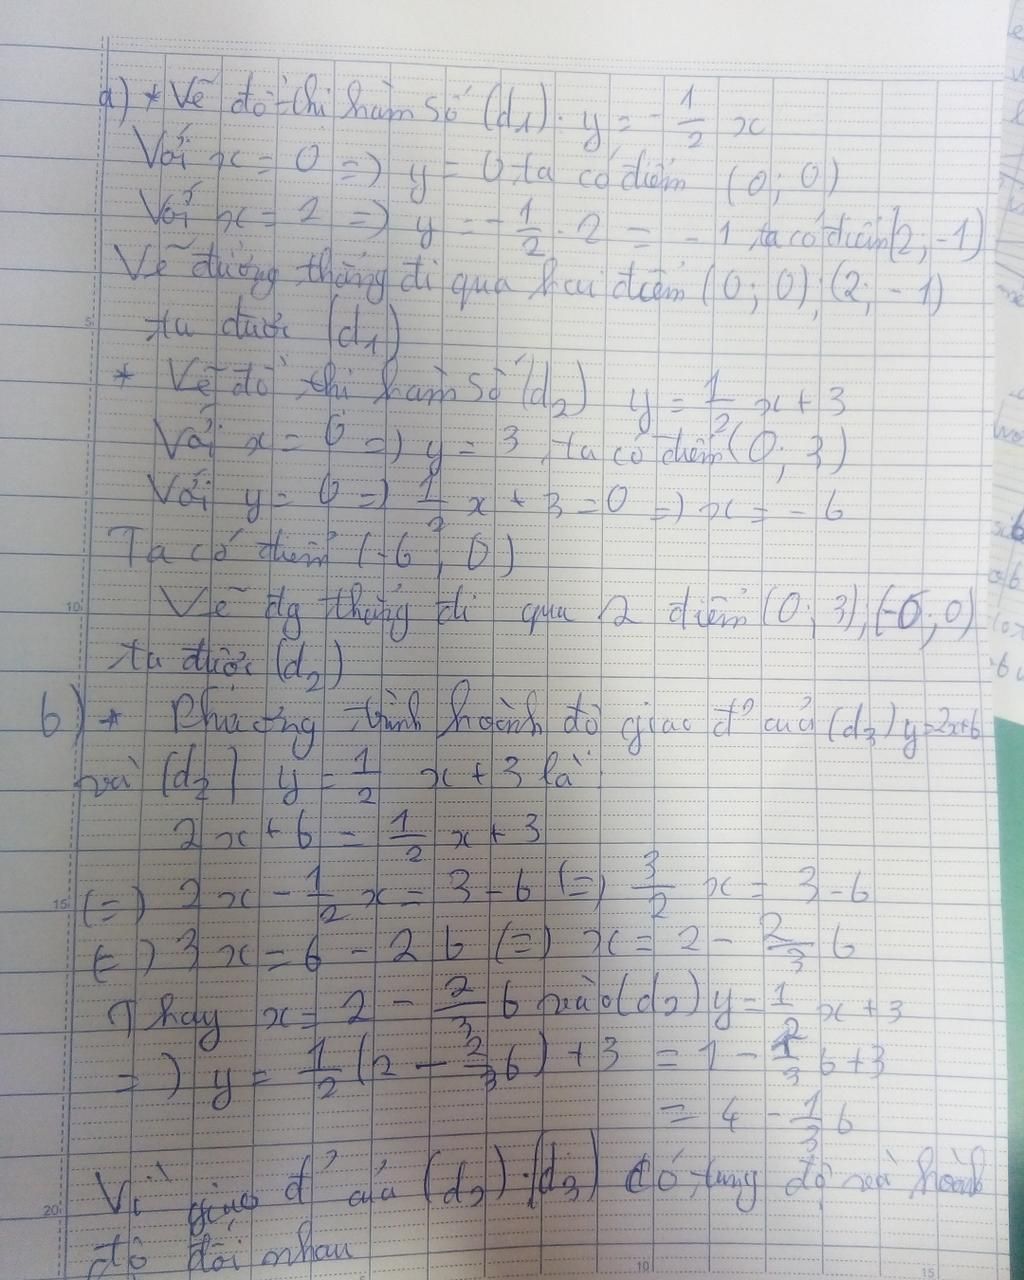 a) * Vẽ đồ thị hàm số (d₁): y = -1/2 x
Với x = 0 => y = 0 ta có điểm (0; 0)
Với x = 2 => y = -1/2 . 2 = -1 ta có điểm (2; -1)
Vẽ đường thẳng đi qua hai điểm (0; 0); (2; -1)
ta được (d₁)
* Vẽ đồ thị hàm số (d₂) y = 1/2 x + 3
Với x = 0 => y = 3 ta có điểm (0; 3)
Với y = 0 => 1/2 x + 3 = 0 => x = -6
Ta có điểm (-6; 0)
Vẽ đg thẳng đi qua 2 điểm (0; 3), (-6; 0)
ta được (d₂)
b) * Phương trình hoành độ giao đ' của (d₃) y=2x+b
và (d₂) y = 1/2 x + 3 là:
2x + b = 1/2 x + 3
(=) 2x - 1/2 x = 3 - b (=) 3/2 x = 3 - b
(=) 3x = 6 - 2b (=) x = 2 - 2/3 b
Thay x = 2 - 2/3 b vào (d₂) y = 1/2 x + 3
=) y = 1/2 (2 - 2/3 b) + 3 = 1 - 1/3 b + 3
= 4 - 1/3 b
Vì giao đ' của (d₂), (d₃) có tung độ và hoành
độ đối nhau
5
10
15
20
5
10
15